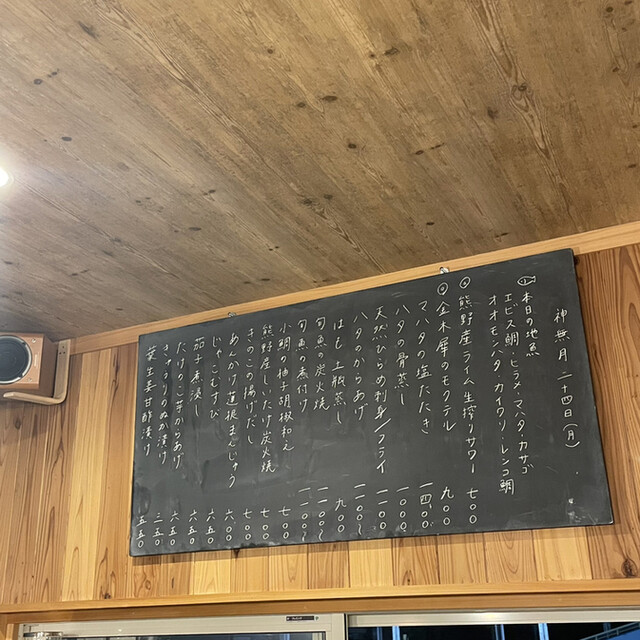 神無月 二十四日(月)
本日の地魚
エビス鯛・ヒラメ・マハタ・カサゴ
オオモンハタ・カイワリ・レンコ鯛
熊野産ライム生搾りサワー 七〇〇
金木犀のモクテル 九〇〇
マハタの塩たたき 一四〇〇
ハタの骨蒸し 一〇〇〇
天然ひらめ刺身/フライ 一一〇〇
ハタのからあげ 一一〇〇〜
はも土瓶蒸し 九〇〇
旬魚の炭火焼 一一〇〇〜
旬魚の煮付け 一二〇〇〜
小鯛の柚子胡椒和え 七〇〇
熊野産しいたけ炭火焼 七〇〇
きのこの揚げだし 七〇〇
あんかけ蓮根まんじゅう 六〇〇
じゃこむすび 六五〇
茄子煮浸し 六五〇
たけのこ芋からあげ 六五〇
きゅうりのぬか漬け 三五〇
葉生姜甘酢漬け 五五〇